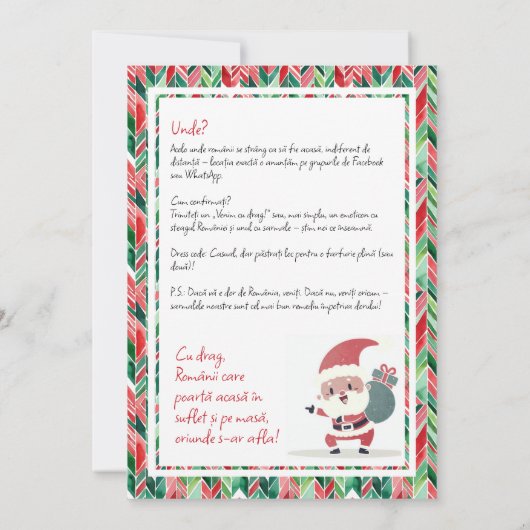 Unde?
Acolo unde românii se strâng ca să fie acasă, indiferent de
distanță – locația exactă o anunțăm pe grupurile de Facebook
sau WhatsApp.
Cum confirmați?
Trimiteți un „Venim cu drag!” sau, mai simplu, un emoticon cu
steagul României și unul cu sarmale – știm noi ce înseamnă.
Dress code: Casual, dar păstrați loc pentru o farfurie plină (sau
două)!
P.S.: Dacă vă e dor de România, veniți. Dacă nu, veniți oricum –
sarmalele noastre sunt cel mai bun remediu împotriva dorului!
Cu drag,
Românii care
poartă acasă în
suflet și pe masă,
oriunde s-ar afla!